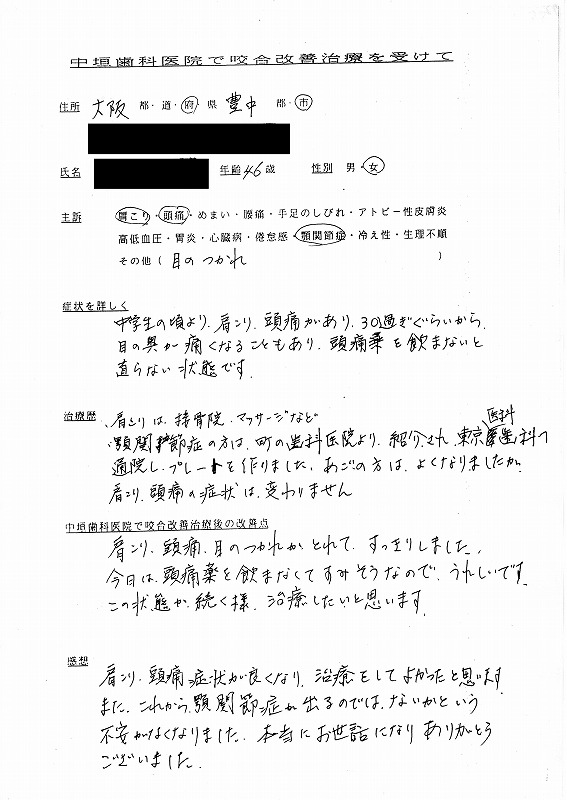 中垣歯科医院で咬合改善治療を受けて
住所 大阪 都・道・府・県 豊中 郡・市
氏名 年齢 46歳 性別 男・女
主訴 肩こり・頭痛・めまい・腰痛・手足のしびれ・アトピー性皮膚炎
高低血圧・胃炎・心臓病・倦怠感・顎関節症・冷え性・生理不順
その他(目のつかれ)
症状を詳しく
中学生の頃より、肩こり、頭痛があり、30過ぎぐらいから、
目の奥が痛くなることもあり、頭痛薬を飲まないと
直らない状態です。
治療歴
肩こりは、接骨院、マッサージなど
顎関節症の方は、町の歯科医院より、紹介され、東京医科歯科へ
通院し、プレートを作りました。あごの方は、よくなりましたが、
肩こり、頭痛の症状は、変わりません
中垣歯科医院で咬合改善治療後の改善点
肩こり、頭痛、目のつかれがとれて、すっきりしました。
今日は、頭痛薬を飲まなくてすみそうなので、うれしいです。
この状態が続く様、治療したいと思います。
感想
肩こり、頭痛症状が良くなり、治療をしてよかったと思います
また、これから、顎関節症が出るのでは、ないかという
不安がなくなりました。本当にお世話になりありがとう
ございました。